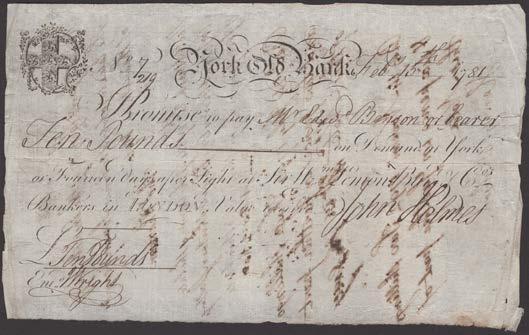 No. 7/219 York Old Bank Feb 1781
I Promise to pay Mr Benson or bearer
Ten Pounds on Demand in York
or Fourteen days after Sight at & Co
Bankers in London, Value received John Holmes
£ Ten Pounds
Ent. Wright